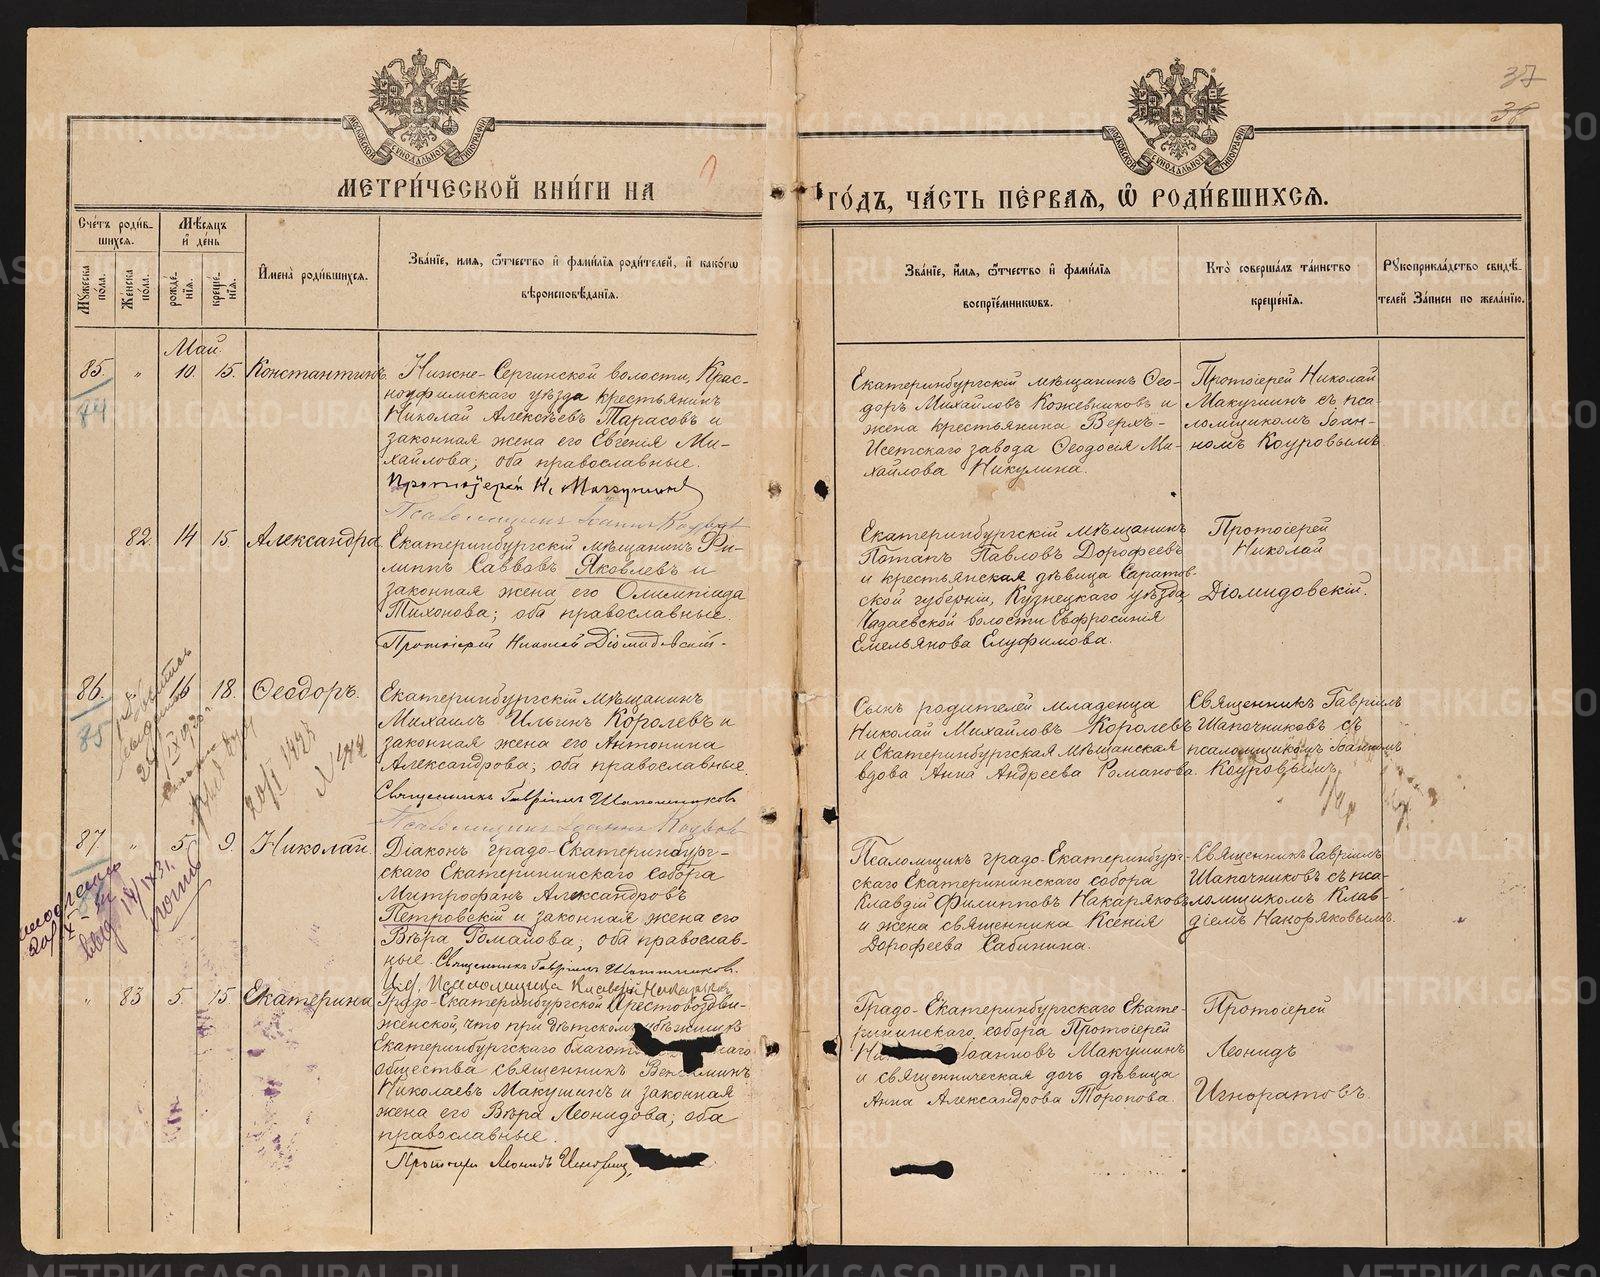 37
38
МОСКОВСКОЙ СѴНОДАЛЬНОЙ ТИПОГРАФІИ
МОСКОВСКОЙ СѴНОДАЛЬНОЙ ТИПОГРАФІИ
МЕТРИ́ЧЕСКОЙ КНИ́ГИ НА
ГО́ДЪ, ЧА́СТЬ ПЕ́РВАЯ, Ѽ РОДИ́ВШИХСЯ.
Сче́тъ роди́в-
шихся.
Мѣ́сяцъ
и҆ де́нь
Мꙋжеска по́ла.
Же́нска по́ла.
рожде́-
нїя.
креще́-
нїя.
И҆мена̀ роди́вшихся.
Зва́нїе, и҆мя, ѻ҆́тчество и҆ фами́лїя роди́телей, и҆ како́гѡ
вѣроисповѣ́данїя.
Зва́нїе, и҆́мя, ѻ҆́тчество и҆ фами́лїя
воспрїе́мниковъ.
Кто̀ соверша́лъ та́инство
креще́нїя.
Рꙋкоприкла́дство свидѣ́-
телей За́писи по жела́нїю.
Май.
85. " 10. 15. Константинъ.
84
Нижне-Сергинской волости, Крас-
ноуфимскаго уѣзда крестьянинъ
Николай Алексѣевъ Тарасовъ и
законная жена его Евгенія Ми-
хайлова; оба православные.
Протоіерей Н. Макушинъ
Псаломщикъ Іоаннъ Коуровъ
Екатеринбургскій мѣщанинъ Ѳео-
доръ Михайловъ Кожевниковъ и
жена крестьянина Верхъ-
Исетскаго завода Ѳеодосія Ми-
хайлова Никулина.
Протоіерей Николай
Макушинъ съ пса-
ломщикомъ Іоан-
номъ Коуровымъ
82. 14 15. Александра.
Екатеринбургскій мѣщанинъ Фи-
липпъ Саввовъ Яковлевъ и
законная жена его Олимпіада
Тихонова; оба православные.
Протоіерей Николай Діомидовскій.
Екатеринбургскій мѣщанинъ
Потапъ Павловъ Дорофеевъ
и крестьянская дѣвица Саратов-
ской губерніи, Кузнецкаго уѣзда,
Чадаевской волости Евфросинія
Емельянова Елуфимова.
Протоіерей
Николай
Діомидовскій.
86. 16 18. Ѳеодоръ.
85
Екатеринбургскій мѣщанинъ
Михаилъ Ильинъ Королевъ и
законная жена его Антонина
Александрова; оба православные.
Священникъ Гавріилъ Шапочниковъ
Псаломщикъ Іоаннъ Коуровъ
Сынъ родителей младенца
Николай Михайловъ Королевъ
и Екатеринбургская мѣщанская
вдова Анна Андреева Романова.
Священникъ Гавріилъ
Шапочниковъ съ
псаломщикомъ Іоанномъ
Коуровымъ
87 " 5. 9. Николай
Діаконъ градо-Екатеринбург-
скаго Екатерининскаго собора
Митрофанъ Александровъ
Петровскій и законная жена его
Вѣра Романова; оба православ-
ные. Священникъ Гавріилъ Шапочниковъ.
И.д. Псаломщика Клавдій Накаряковъ
Псаломщикъ градо-Екатеринбург-
скаго Екатерининскаго собора
Клавдій Филипповъ Накаряковъ
и жена священника Ксенія
Дорофеева Сабинина.
Священникъ Гавріилъ
Шапочниковъ съ пса-
ломщикомъ Клав-
діемъ Накоряковымъ.
" 83 5. 15. Екатерина
Градо-Екатеринбургской Крестовоздви-
женской, что при дѣтскомъ убѣжищѣ
Екатеринбургскаго
общества священникъ Веніаминъ
Николаевъ Макушинъ и законная
жена его Вѣра Леонидова; оба
православные.
Протоіерей Леонидъ
Градо-Екатеринбургскаго Екате-
рининскаго собора Протоіерей
Іоанновъ Макушинъ
и священническая дочь дѣвица
Анна Александрова Торопова.
Протоіерей
Леонидъ
Игноратовъ.
METRIKI.GASO-URAL.RU